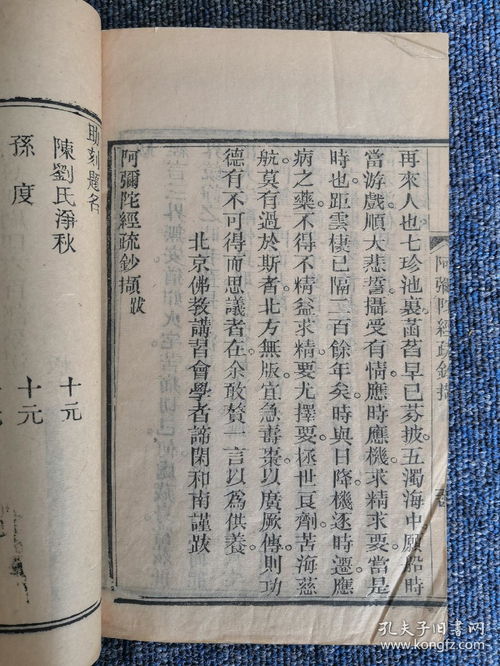 阿彌陀經疏鈔擷
再來人也七珍池裏菡萏早已芬披五濁海中願船時
當游戲順大悲誓攝受有情應時應機求精求要當是
時也距雲棲已隔二百餘年矣時與日降機逐時遷應
病之藥不得不精益求精要尤擇要拯世良劑苦海慈
航莫有過於斯者北方無版宜急壽棗以廣厥傳則功
德有不可得而思議者在余敢贊一言以爲供養
北京佛教講習會學者諦閑和南謹跋
阿彌陀經疏鈔擷跋
助刻題名
陳劉氏淨秋 十元
孫度 十元
孔夫子旧书网
www.kongfz.com